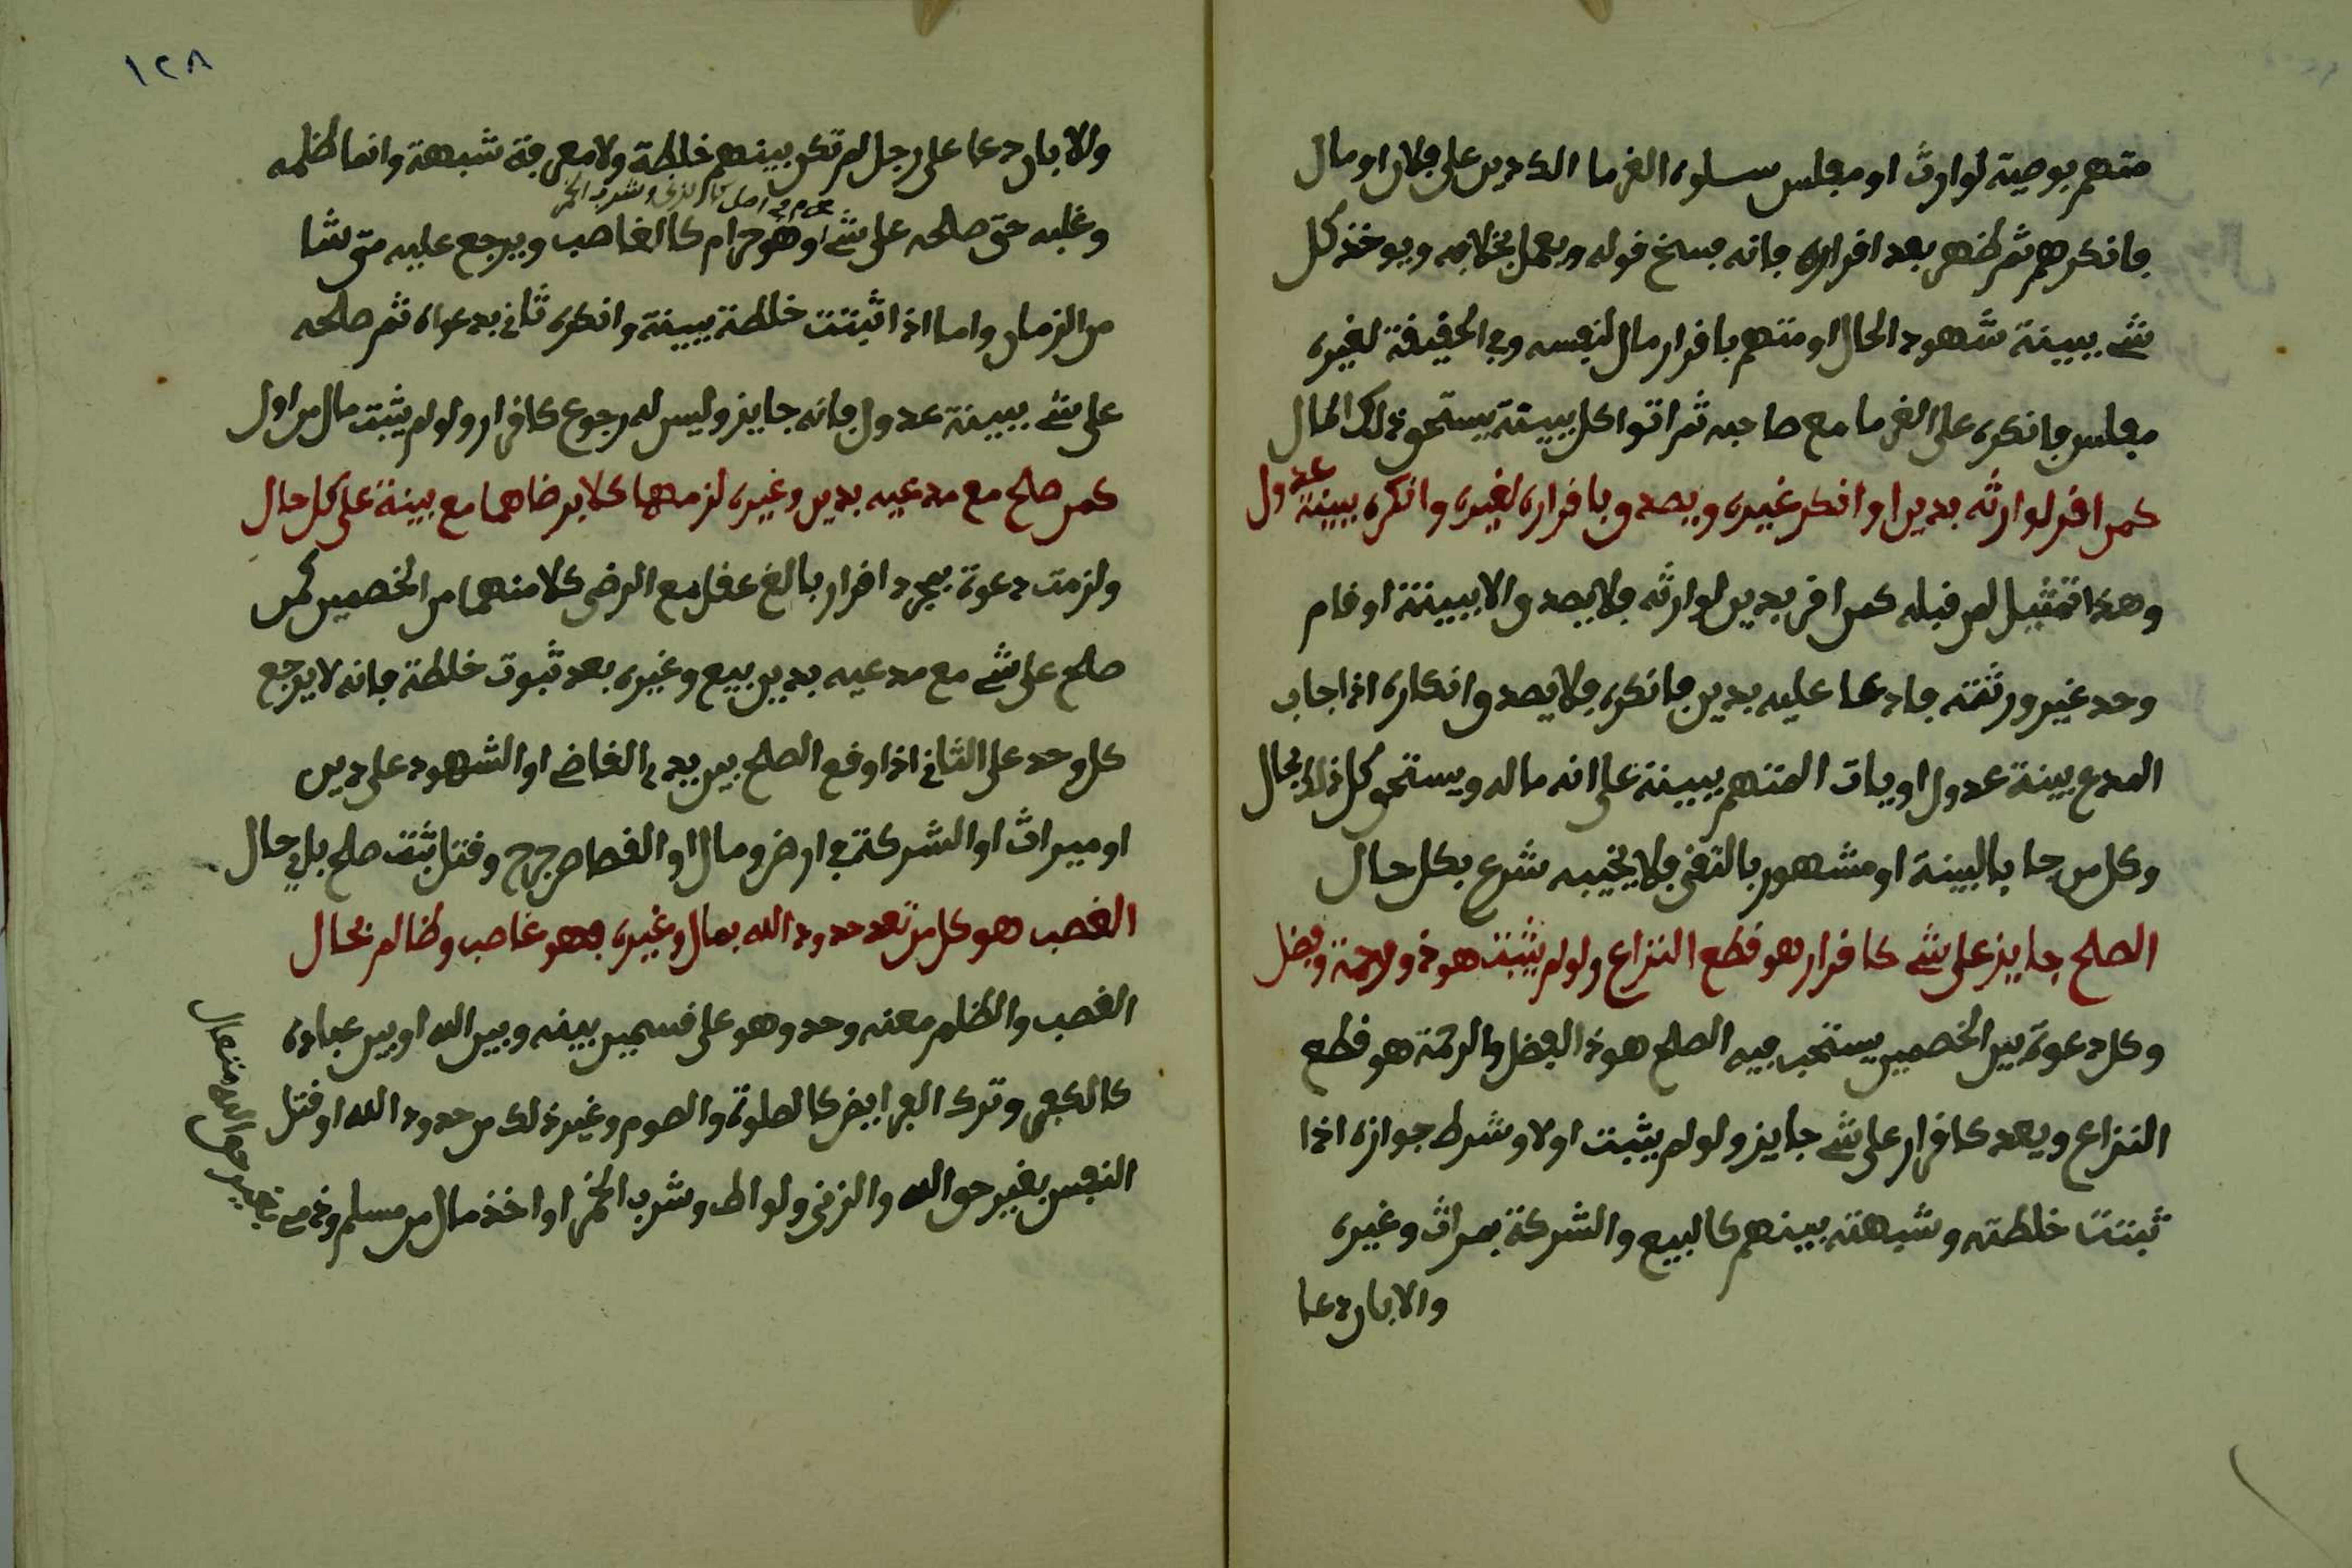 متهم بوصية لوارث او مفلس سلوه الغرما الك دين على فلان او مال
فانكرهم ثم ظهر بعد اقراره فانه يفسخ قوله ويعمل بخلافه ويوخذ كل
شے ببينة شهود الحال او متهم باقرار مال لنفسه وفي الحقيقة لغيره
مفلس فانكره على الغرما مع صاحبه ثم اتوا كل ببينة يستحق ذلك المال
كمن اقر لوارثه بدين او انكر غيره ويصدق باقراره لغيره وانكره ببينة عدول
وهذا تمثيل لمن قبله كمن اقر بدين لوارثه فلا يصدق الا ببينة او قام
وحد غير ورثته فادعا عليه بدين فانكره فلا يصدق انكاره اذا جاب
المدع بينة عدول او يات المتهم ببينة على انه ماله ويستحق كل ذلك بحال
وكل من جا بالبينة او مشهور بالتقى فلا يخيبه شرع بكل حال
الصلح جايز على شے كاقرار هو قطع النزاع ولو لم يثبت هو ذو رحمة وفضل
وكل دعوة بين الخصمين يستحب فيه الصلح هو ذ الفضل والرحمة هو قطع
النزاع ويعد كاقرار على شے جايز ولو لم يثبت اولا وشرط جوازه اذا
ثبتت خلطته وشبهته بينهم كالبيع والشركة بمراث وغيره
والا بان دعا
١٢٨
والا بان دعا على رجل لم تكن بينهم خلطة ولا معرفة شبهة وانما ظلمه
وغلبه حتى صالحه على شے او هو حرام كالغاصب ويرجع عليه متى شا
من الزمان واما اذا ثبتت خلطة ببينة وانكره ثاني بدعواه ثم صالحه
على شے ببينة عدول فانه جايز وليس له رجوع كاقرار ولو لم يثبت مال من اول
كمن صلح مع مدعيه بدين وغيره لزمهما كلا برضاهما مع بينة على كل حال
ولزمت دعوة بمجرد اقرار بالغ عقل مع الرضى كلا منهما من الخصمين كمن
صلح على شے مع مدعيه بدين بيع وغيره بعد ثبوت خلطة فانه لا يرجع
كل وحد على الثاني اذا وقع الصلح بين يدي القاضے او الشهود على دين
او ميراث او الشركة في ارض ومال او القصاص جرح وقتل ثبت صلح بلى حال
الغصب هو كل من تعد حدود الله بمال وغيره فهو غاصب وظالم بحال
الغصب والظلم معنه وحد وهو على قسمين بينه وبين الله او بين عباده
كالكفر وترك الفرايض كالصلوة والصوم وغير ذلك من حدود الله او قتل
النفس بغير حق الله والزنى ولواط وشرب الخمر او اخذ مال من مسلم وذمے